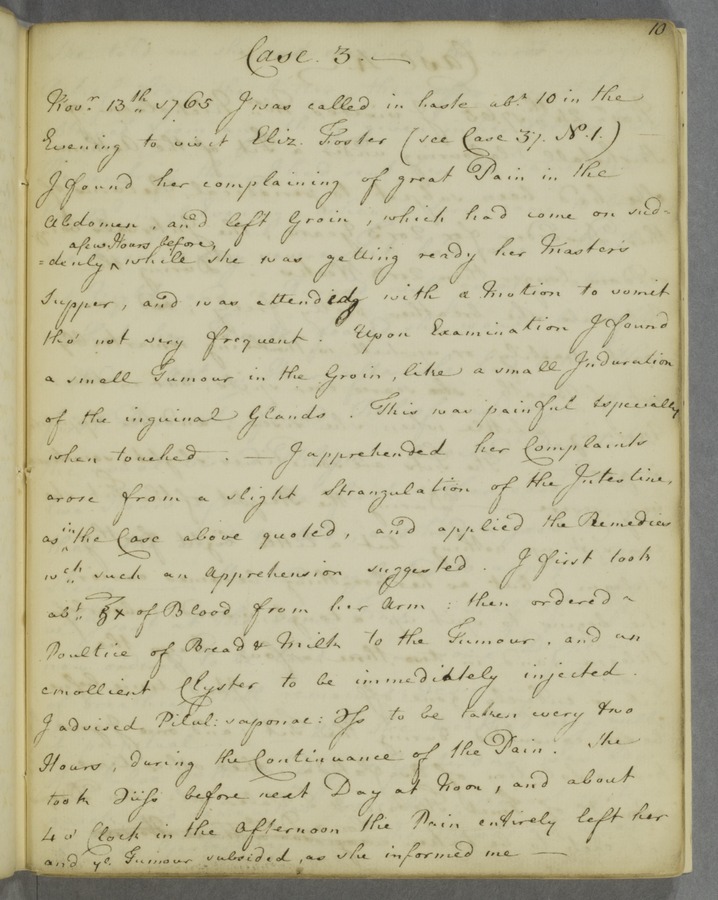 10
Case. 3.—
Novr. 13th 1765 I was called in haste abt. 10 in the
Evening to visit Eliz. Foster (see Case 37. No. 1.)
I found her complaining of great Pain in the
Abdomen, and left Groin, which had come on sud=
a few Hours before,
=denly ^ while she was getting ready her Master's
Supper, and was attended with a Motion to vomit
tho' not very frequent. Upon Examination I found
a small Tumour in the Groin, like a small Induration
of the inguinal Glands. This was painful Especially
when touched. — I apprehended her Complaints
arose from a slight Strangulation of the Intestine,
as ^in the Case above quoted, and applied the Remedies
wch such an Apprehension suggested. I first took
abt. ℥x of Blood from her Arm: then ordered a
Poultice of Bread & Milk to the Tumour, and an
emollient Clyster to be immediately injected.
I advised Pilul: saponac: ℈ſs to be taken every two
Hours, during the Continuance of the Pain. She
took ʒiiſs before next Day at Noon, and about
4 o' Clock in the Afternoon the Pain entirely left her
and ye. Tumour subsided, as she informed me —